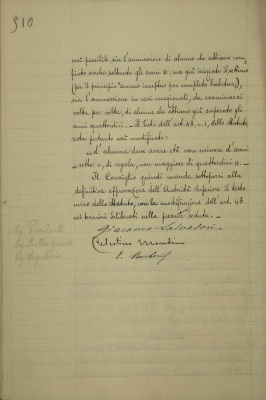 310
sia possibile, sia l'ammissione di alunne che abbiano com-
piuto anche soltanto gli anni 6, ma già iniziato il settimo
(per il principio "annus inceptus pro completo habetur"),
sia l'ammissione in casi eccezionali, da esaminarsi
volta per volta, di alunne che abbiano già superato gli
anni quattordici. – Il testo dell'art. 43, – 1, dello Statuto
resta pertanto così modificato:
"L'alunna deve avere età non minore d'anni
sette e, di regola, non maggiore di quattordici". –
Il Consiglio quindi manda sottoporsi alla
definitiva approvazione dell'Autorità superiore il testo
unico dello Statuto, con la modificazione dell'art. 43
nei termini deliberati nella presente seduta. –
Giacomo Salvadori
Celestino